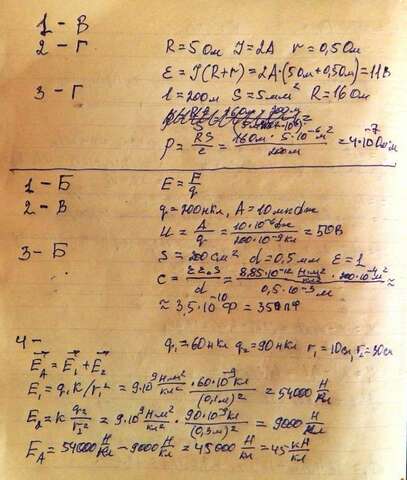 1 - В
2 - Г R = 5 Ом J = 2А r = 0,5 Ом
ε = J(R+r) = 2А·(5 Ом+0,5 Ом) = 11В
3 - Г l = 200м S = 5мм² R = 16 Ом
ρ = RS/l = 16 Ом · 5·10⁻⁶ м²/200м = 4·10⁻⁷ Ом·м
1 - Б E = F/q
2 - В q = 200нКл, A = 10 мкДж
U = A/q = 10·10⁻⁶Дж/200·10⁻⁹Кл = 50В
3 - Б S = 200см² d = 0,5мм ε = 1
C = εε₀S/d = 8,85·10⁻¹² · 200·10⁻⁴м²/0,5·10⁻³м ≈
≈ 3,5·10⁻¹⁰ Ф = 350пФ
4 - q₁ = 60нКл q₂ = 90нКл r₁ = 10см, r₂ = 30см
E⃗A = E⃗₁ + E⃗₂
E₁ = q₁K/r₁² = 9·10⁹ Нм²/Кл² · 60·10⁻⁹Кл/(0,1м)² = 54000 Н/Кл
E₂ = K q₂/r₂² = 9·10⁹ Нм²/Кл² · 90·10⁻⁹Кл/(0,3м)² = 9000 Н/Кл
EA = 54000 Н/Кл - 9000 Н/Кл = 45000 Н/Кл = 45 кН/Кл